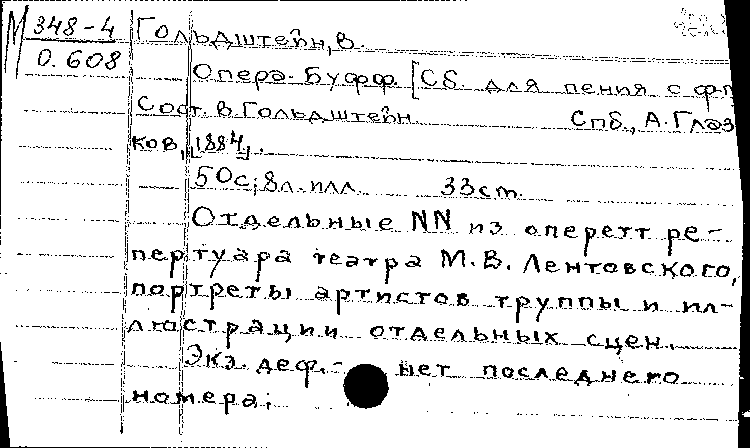 М 348-4
0.608
Гольдштейн, В.
Опера-Буфф. [Сб. для пения с ф-п
Сост. В. Гольдштейн. Спб., А. Глаз
ков, [1884].
50с; 8л. илл. 33см.
Отдельные NN из оперетт ре-
пертуара театра М.В. Лентовского,
портреты артистов труппы и ил-
люстрации отдельных сцен.
Экз. деф. - нет последнего
номера;